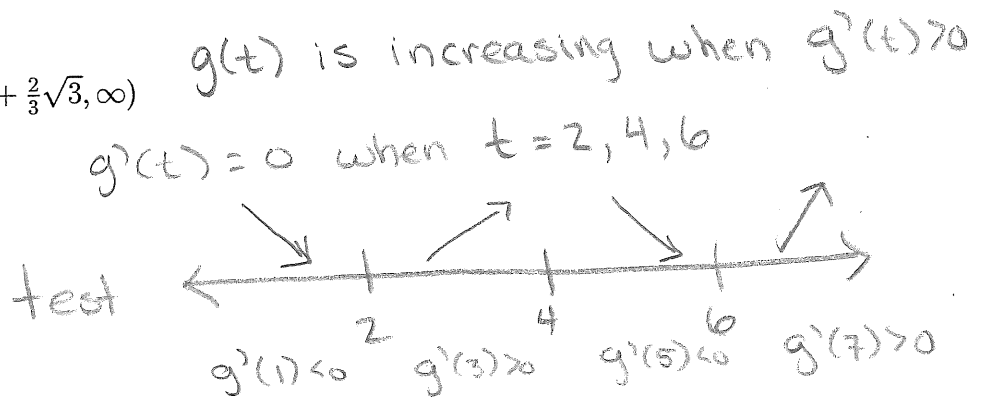 g(t) is increasing when g'(t)>0
+ 2/3√3, ∞)
g'(t)=0 when t=2,4,6
test
2 4 6
g'(1)<0 g'(3)>0 g'(5)<0 g'(7)>0